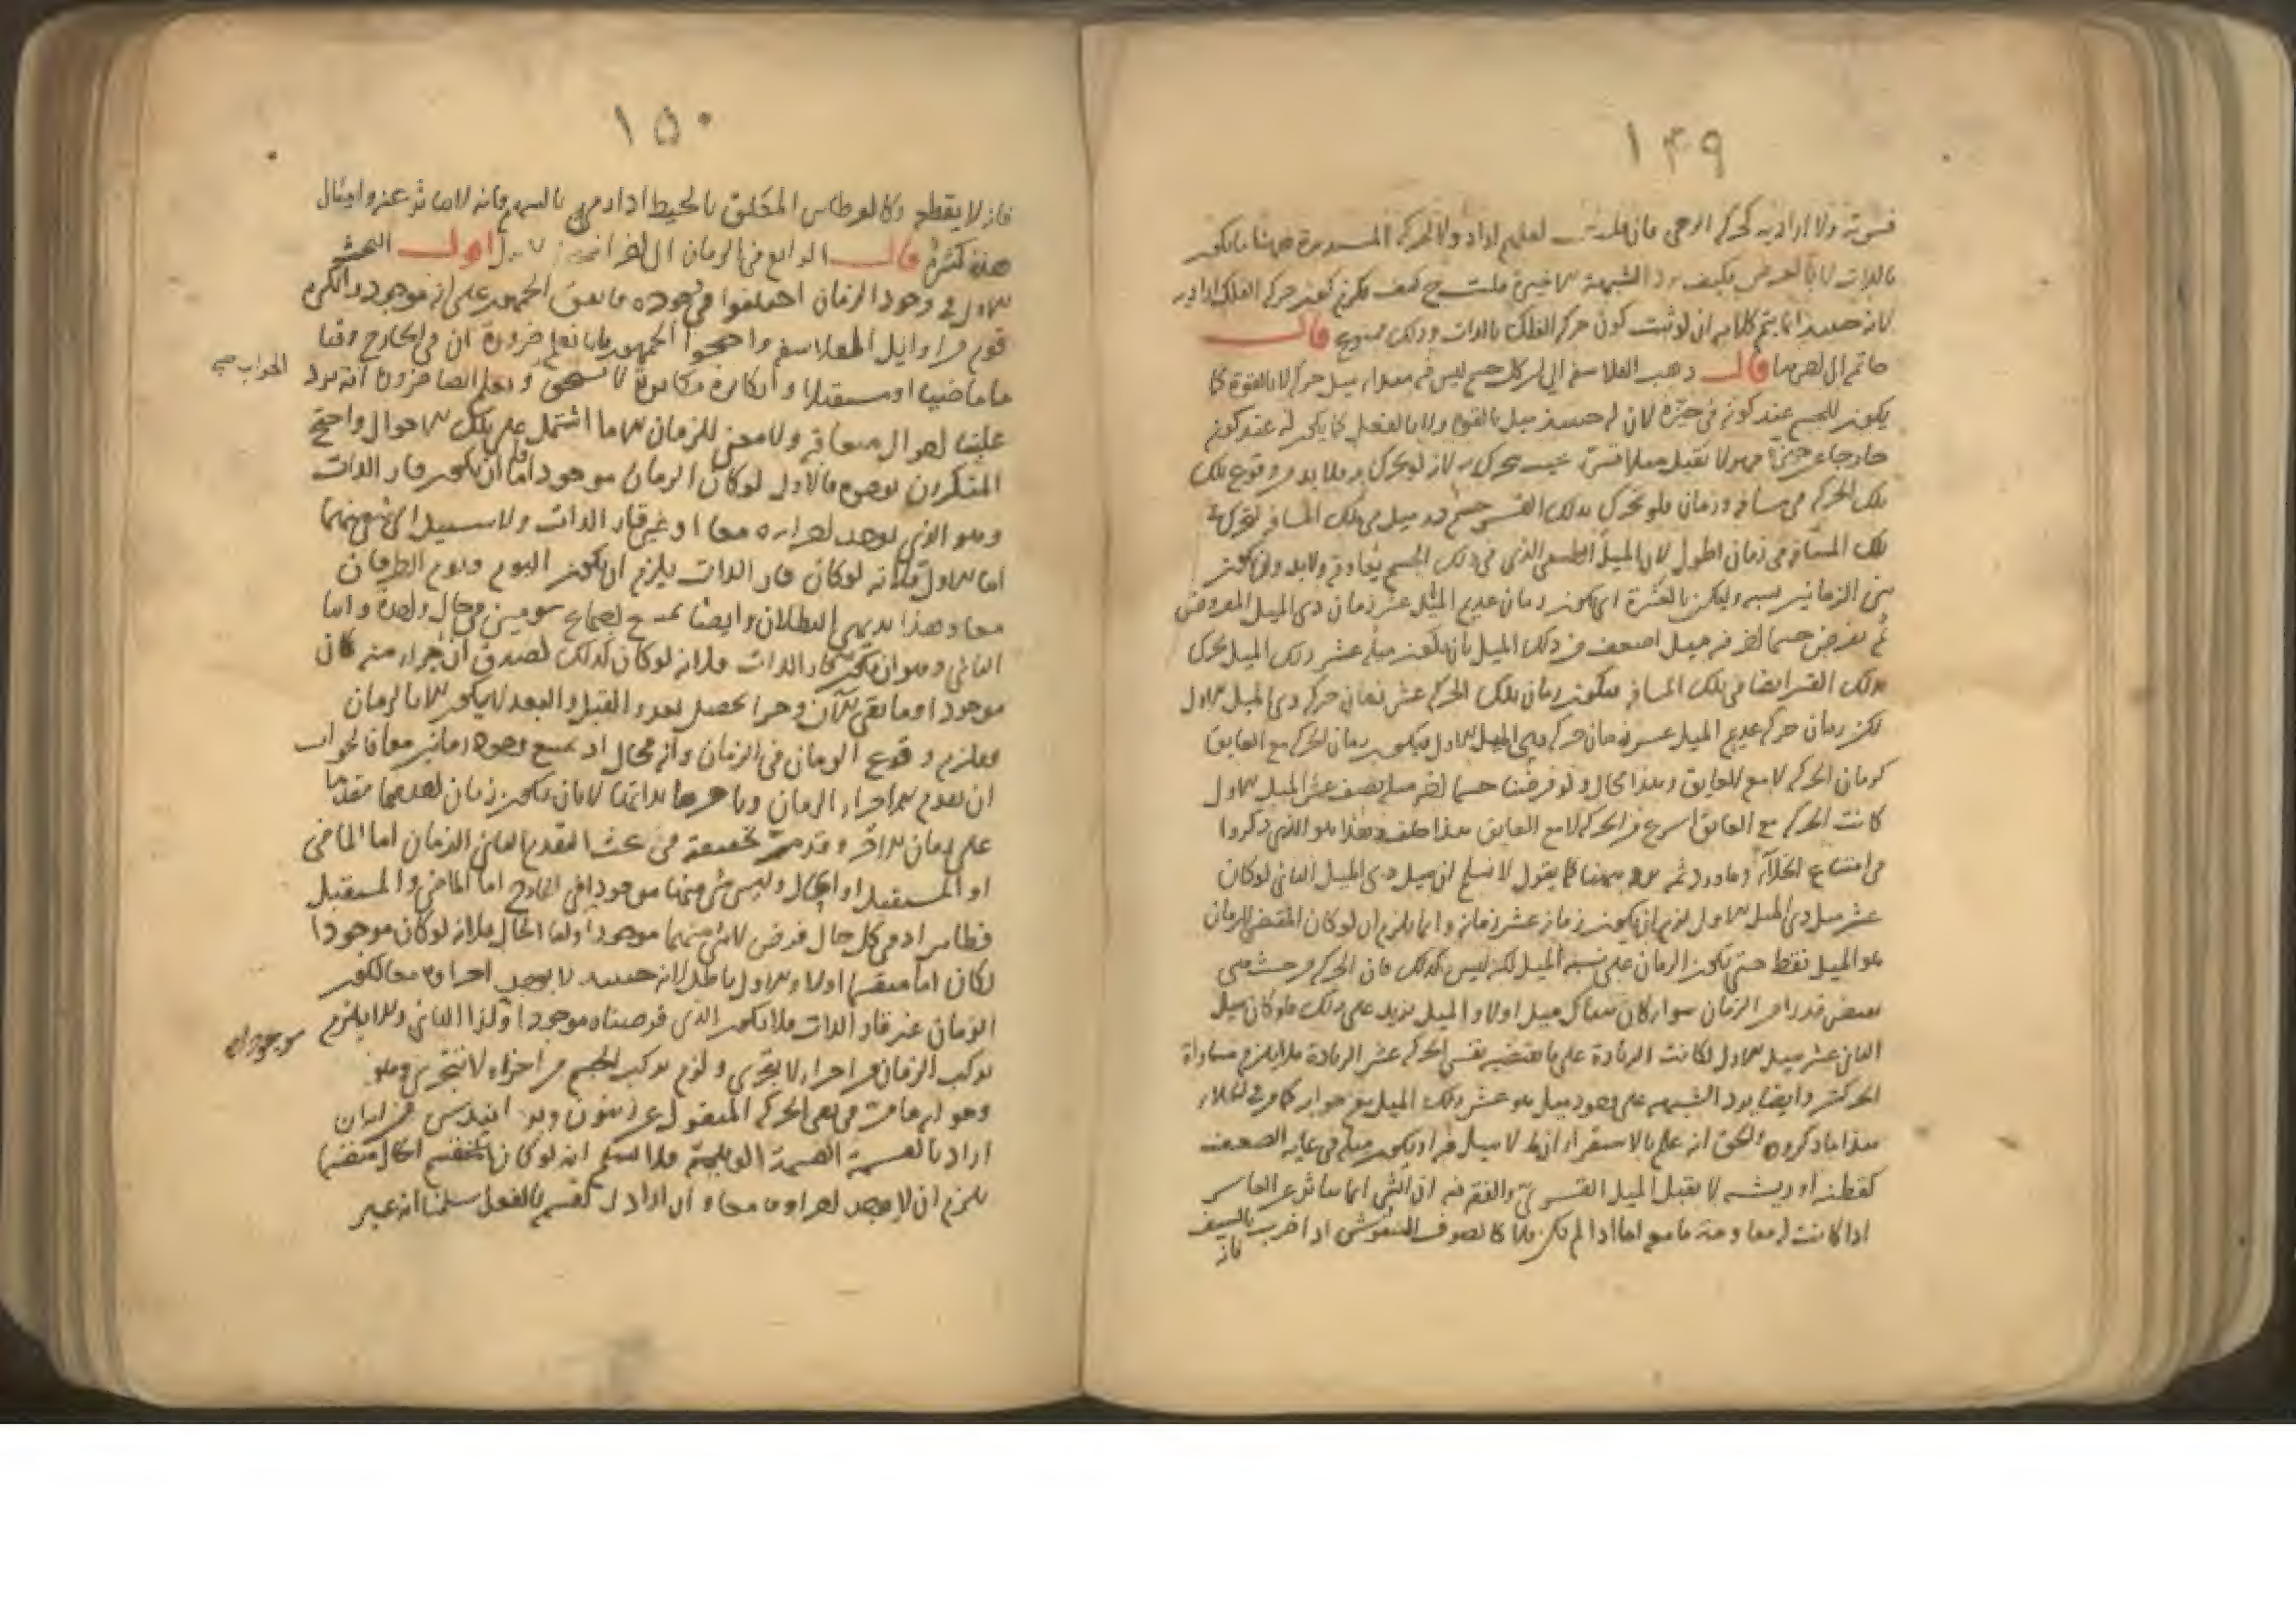 ١٤٩
قسرية ولا ارادية كحركة الرحى فان قلت لعلهم ارادوا بالحركة المستديرة ههنا ما يكون
بالذات لا بالعرض فكيف يرد الشبهة الاخيرة قلت ح كيف يمكن كون حركة الفلك ارادية
لانه حينئذ انما يتم كلامه ان لو ثبت كون حركة الفلك بالذات وذلك ممنوع قال
خاتم الى اخرها اقول ذهب الفلاسفة الى ان كل جسم ليس فيه مبدا ميل حركة لا بالقوة كما
يكون للجسم عند كونه في حيزه لان له حينئذ ميل بالقوة ولا بالفعل كما يكون له عند كونه
خارجا عن حيزه فهو لا يقبل ميلا قسريا بحيث يتحرك به لانه لو تحرك به فلا بد من وقوع تلك
تلك الحركة في مسافة وزمان فلو تحرك بذلك القسر جسم فيه ميل في تلك المسافة لتحرك
تلك المسافة في زمان اطول لان الميل الطبيعي الذي في ذلك الجسم يعاوقه ولا بد وان يكون
بين الزمانين نسبة وليكن بالعشرة اي يكون زمان عديم الميل عشر زمان ذي الميل المفروض
ثم نفرض جسما اخر فيه ميل اضعف من ذلك الميل بان يكون ميله عشر ذلك الميل يحرك
بذلك القسر ايضا في تلك المسافة فيكون زمان تلك الحركة عشر زمان حركة ذي الميل الاول
لكن زمان حركة عديم الميل عشر زمان حركة ذي الميل الاول فيكون زمان الحركة مع العايق
كزمان الحركة لا مع العايق وهذا محال ولو فرضنا جسما اخر ميله نصف عشر الميل الاول
كانت الحركة مع العايق اسرع من الحركة لا مع العايق هذا خلف وهذا هو الذي ذكروا
في امتناع الخلاء وما ورد ثمة يرد ههنا فلنا ان نقول لا نسلم ان ميل ذي الميل الثاني لو كان
عشر ميل ذي الميل الاول لزم ان يكون زمانه عشر زمانه وانما يلزم ان لو كان المقتضى للزمان
هو الميل فقط حتى يكون الزمان على نسبة الميل لكنه ليس كذلك فان الحركة من حيث هي
تقتضي قدرا من الزمان سواء كان هناك ميل اولا والميل يزيد على ذلك فلو كان ميل
الثاني عشر ميل الاول لكانت الزيادة على ما تقتضيه نفس الحركة عشر الزيادة فلا يلزم مساواة
الحركتين وايضا يرد الشبهة على وجود ميل هو عشر ذلك الميل مع جوابه كما مر في الخلاء
هذا ما ذكروه والحق انه علم بالاستقراء ان ما لا ميل فيه او يكون ميله في غاية الضعف
كقطنة او ريشة لا يقبل الميل القسري والفقه فيه ان الشيء انما يتاثر عن القاسر
اذا كانت له معاوقة ما معه اما اذا لم يكن فلا كالصوف المنفوش اذا ضرب بالسيف
فانه
١٥٠
فانه لا يقطع وكالقرطاس المعلق بالخيط اذا رمي بالسهم فانه لا يتاثر عنه وامثال
هذه كثيرة قال الرابع في الزمان الى اخر اقول البحث
الاول في وجود الزمان اختلفوا في وجوده فاتفق الجمهور على انه موجود وانكره
قوم من اوايل الفلاسفة واحتجوا الجمهور بانا نعلم ضرورة ان في الخارج وقتا
ما ماضيا او مستقبلا وانكاره مكابرة لا يستحق ونعلم ايضا ضرورة انه يرد
الجواب صح
علينا احوال متعاقبة ولا معنى للزمان الا ما اشتمل على تلك الاحوال واحتج
المنكرون بوجوه فالاول لو كان الزمان موجودا فاما ان يكون قار الذات
وهو الذي يوجد اجزاؤه معا او غير قار الذات ولا سبيل الى شيء منهما
اما الاول فلانه لو كان قار الذات يلزم ان يكون اليوم ويوم الطوفان
معا وهذا بديهي البطلان وايضا يمتنع اجتماع يومين في حال واحدة واما
الثاني وهو ان يكون غير قار الذات فلانه لو كان كذلك لصدق ان جزءا منه كان
موجودا وما بقي الان وجزءا يحصل بعد والقبل والبعد لا يكون الا بالزمان
فيلزم وقوع الزمان في الزمان وانه محال اذ يمتنع وجود زمانين معا فالجواب
ان تقدم اجزاء الزمان وتاخرها بذاتها لا بان يكون زمان احدهما مقدما
على زمان الاخر وقد مر تحقيقه في بحث التقدم الثاني الزمان اما الماضي
او المستقبل او الحال وليس شيء منها موجودا في الخارج اما الماضي والمستقبل
فظاهر اذ في كل حال فرض لا شيء منهما موجودا واما الحال فلانه لو كان موجودا
لكان اما منقسما اولا والاول باطل لانه حينئذ لا يوجد اجزاؤه معا لكون
الزمان غير قار الذات فلا يكون الذي فرضناه موجودا وكذا الثاني والا يلزم
موجودا
تركب الزمان من اجزاء لا تتجزى ولزم تركب الجسم من اجزاء لا تتجزى وهو
وهو ايضا مر في نفي الحركة المنقول عن زينون وهو انه ليس ان
اراد بالقسمة القسمة الوهمية فلا نسلم انه لو كان الحال منقسما
يلزم ان لا يوجد اجزاؤه معا وان اراد القسمة بالفعل سلمنا انه غير